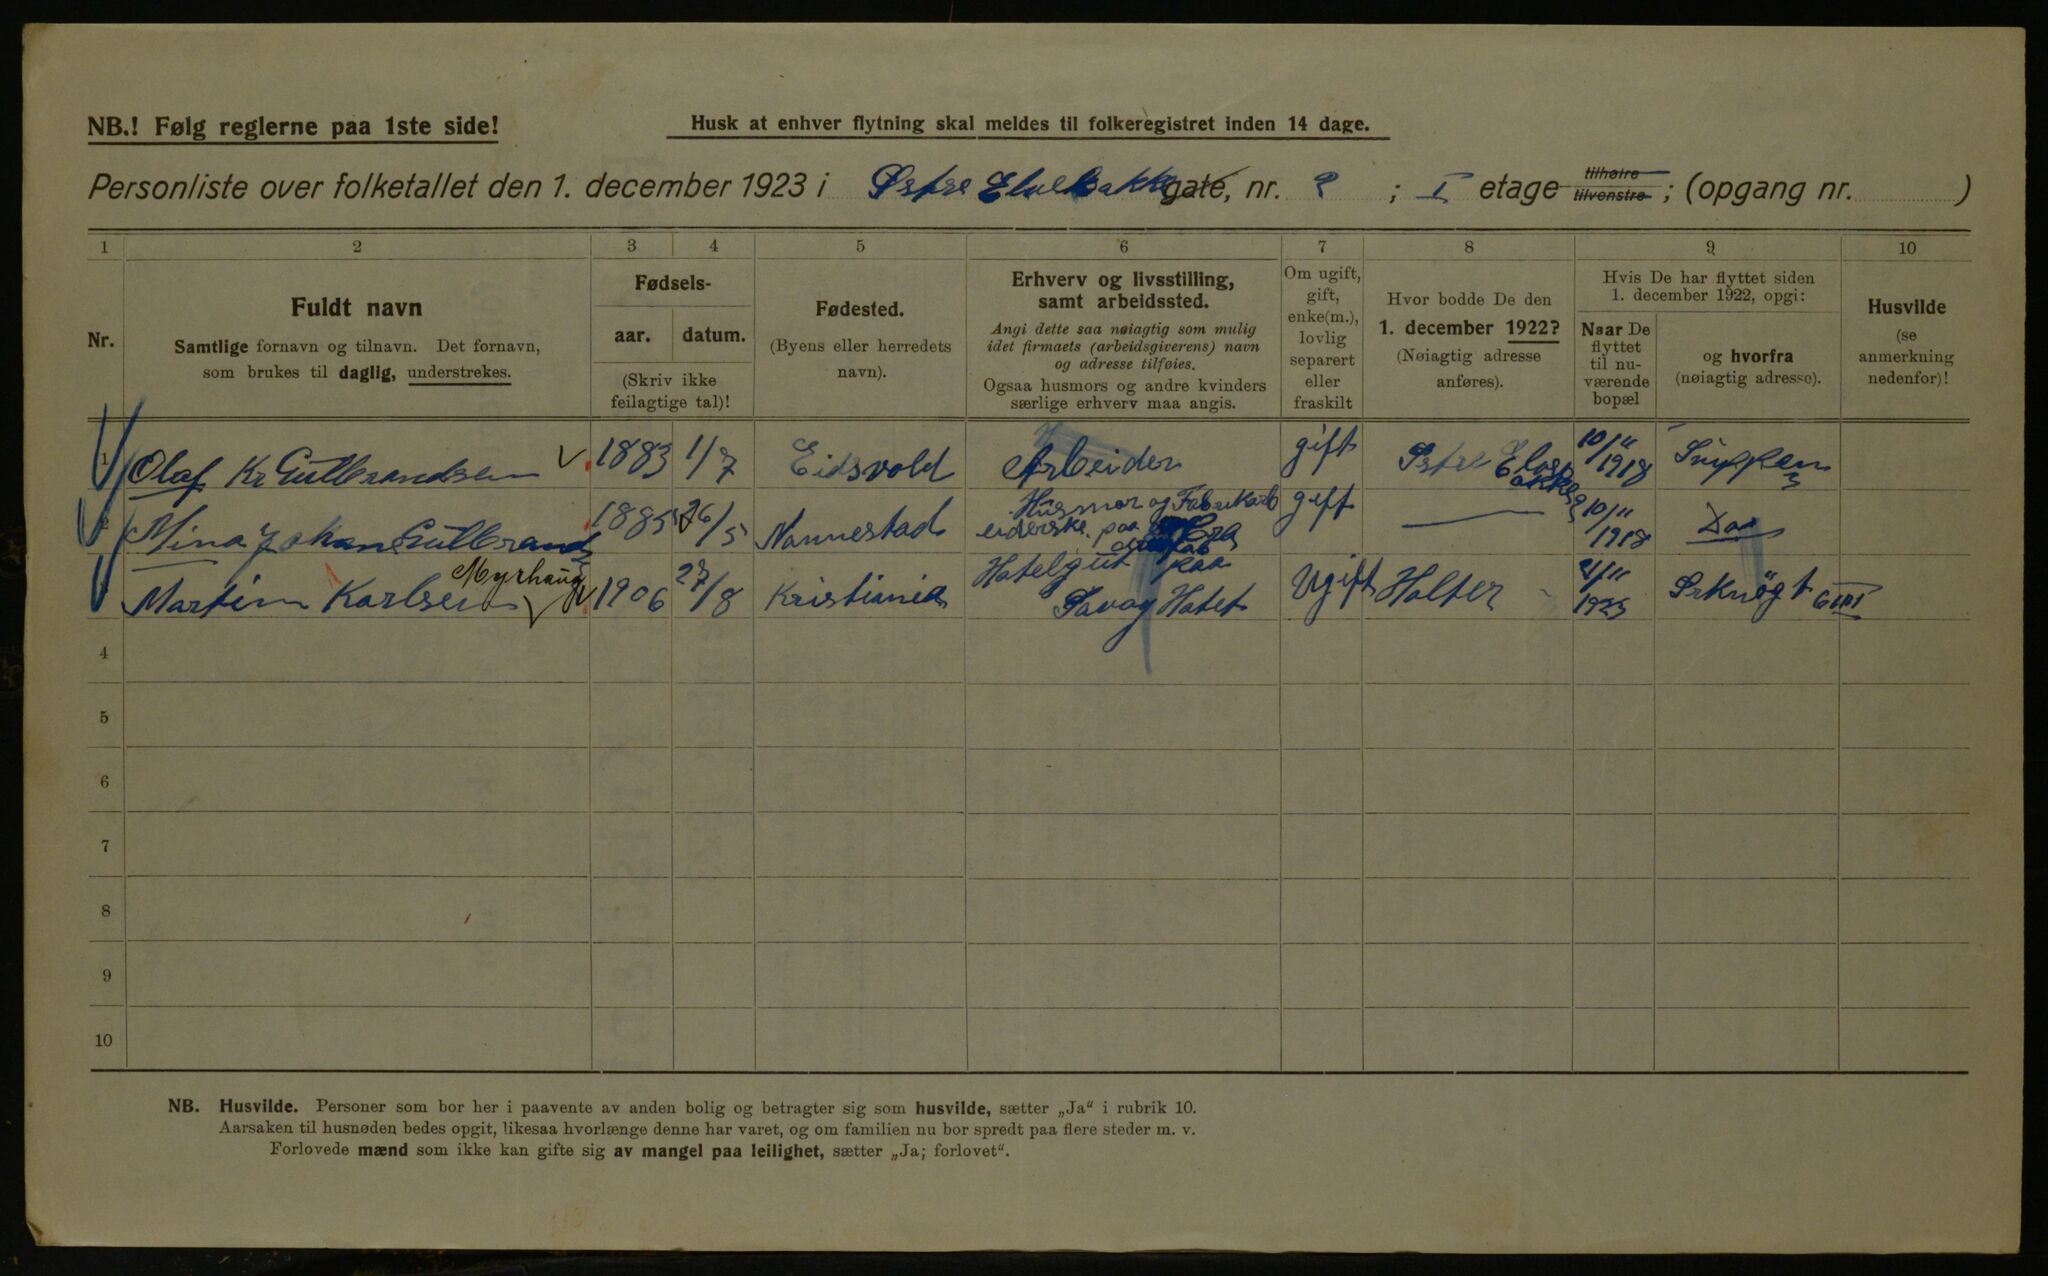 NB.! Følg reglerne paa 1ste side!
Husk at enhver flytning skal meldes til folkeregistret inden 14 dage.
Personliste over folketallet den 1. december 1923 i Østre Elvebakke gate, nr. 2 ; I etage tilhøire tilvenstre ; (opgang nr. )
1 2 3 4 5 6 7 8 9 10
Nr.
Fuldt navn
Samtlige fornavn og tilnavn. Det fornavn,
som brukes til daglig, understrekes.
Fødsels-
aar. datum.
(Skriv ikke
feilagtige tal)!
Fødested.
(Byens eller herredets
navn).
Erhverv og livsstilling,
samt arbeidssted.
Angi dette saa nøiagtig som mulig
idet firmaets (arbeidsgiverens) navn
og adresse tilføies.
Ogsaa husmors og andre kvinders
særlige erhverv maa angis.
Om ugift,
gift,
enke(m.),
lovlig
separert
eller
fraskilt
Hvor bodde De den
1. december 1922?
(Nøiagtig adresse
anføres).
Hvis De har flyttet siden
1. december 1922, opgi:
Naar De
flyttet
til nu-
værende
bopæl
og hvorfra
(nøiagtig adresse).
Husvilde
(se
anmerkning
nedenfor)!
1 Olaf Kr Gulbrandsen 1883 1/7 Eidsvold Arbeider gift Østre Elvebakke 2 10/11 1918
2 Mina Johan Gulbrands 1885 26/5 Nannestad Husmor og Fabrikarb
eiderske paa gift 10/11 1918 Do
3 Martin Karlsen Myrhaug 1906 27/8 Kristiania Hotelgut paa
Savoy Hotel Ugift Holter 11 1923
4
5
6
7
8
9
10
NB. Husvilde. Personer som bor her i paavente av anden bolig og betragter sig som husvilde, sætter „Ja“ i rubrik 10.
Aarsaken til husnøden bedes opgit, likesaa hvorlænge denne har varet, og om familien nu bor spredt paa flere steder m. v.
Forlovede mænd som ikke kan gifte sig av mangel paa leilighet, sætter „Ja; forlovet“.